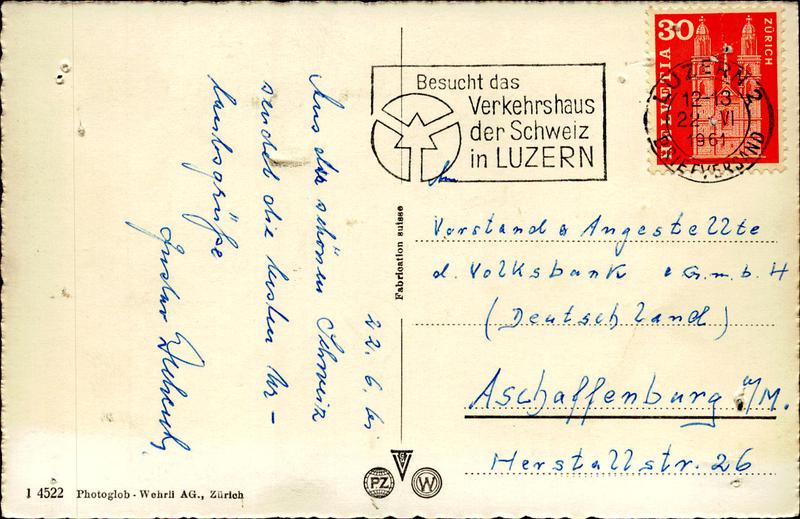 22. 6. 61
Aus der schönen Schweiz
sendet die besten Ur-
laubsgrüße
Gustav
Besucht das
Verkehrshaus
der Schweiz
in LUZERN
30
HELVETIA
ZÜRICH
LUZERN 2
12-13
22. VI
1961
BRIEFVERSAND
An
Vorstand & Angestellte
d. Volksbank e.G.m.b.H
(Deutschland)
Aschaffenburg a/M.
Herstallstr. 26
Fabrication suisse
PZ
W
1 4522 Photoglob - Wehrli AG., Zürich